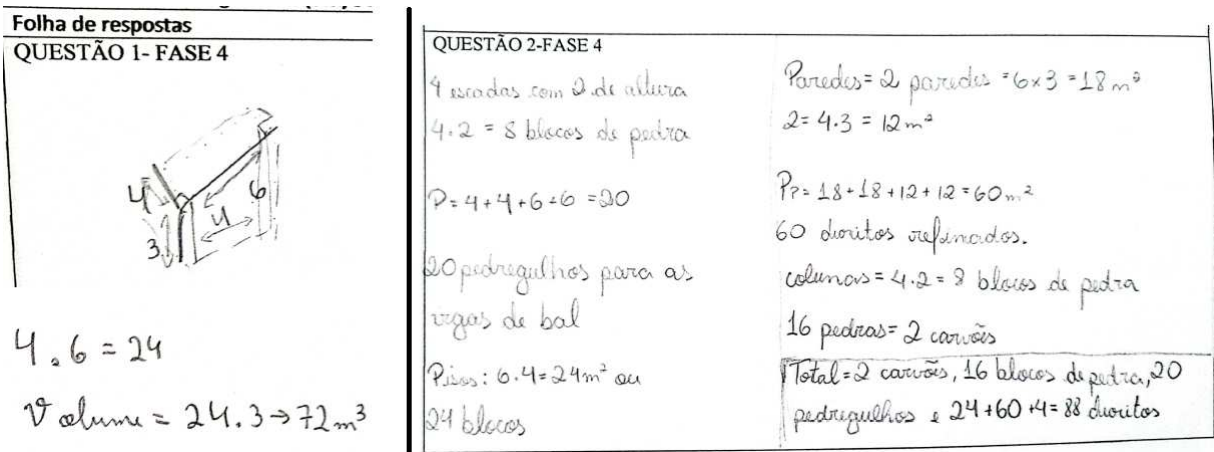 Folha de respostas
QUESTÃO 1- FASE 4
4
6
4
3
4.6 = 24
Volume = 24.3→72m³
QUESTÃO 2-FASE 4
4 escadas com 2 de altura
4.2 = 8 blocos de pedra
P=4+4+6+6 =20
20 pedregulhos para as
vigas de bal
Pisos: 6.4=24m² ou
24 blocos
Paredes= 2 paredes =6×3 =18m²
2=4.3=12m²
PP=18+18+12+12=60m²
60 dioritos refinados.
colunas=4.2=8 blocos de pedra
16 pedras=2 carvões
Total=2 carvões, 16 blocos de pedra, 20
pedregulhos e 24+60+4=88 dioritos